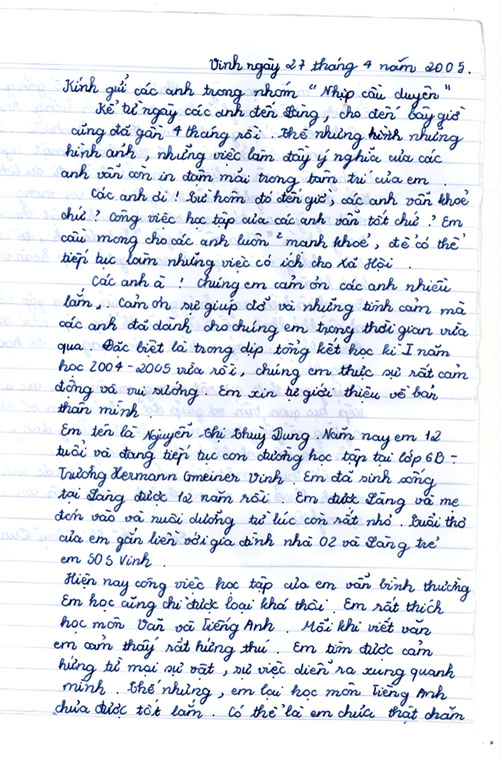 Vinh ngày 27 tháng 4 năm 2005.
Kính gửi các anh trong nhóm "Nhịp cầu duyên"
Kể từ ngày các anh đến Làng, cho đến bây giờ
cũng đã gần 4 tháng rồi. Thế nhưng hình những
hình ảnh, những việc làm đầy ý nghĩa của các
anh vẫn còn in đậm mãi trong tâm trí của em.
Các anh ơi! Từ hôm đó đến giờ, các anh vẫn khoẻ
chứ? Công việc học tập của các anh vẫn tốt chứ? Em
cầu mong cho các anh luôn mạnh khoẻ, để có thể
tiếp tục làm những việc có ích cho Xã Hội.
Các anh à! Chúng em cảm ơn các anh nhiều
lắm. Cảm ơn sự giúp đỡ và những tình cảm mà
các anh đã dành cho chúng em trong thời gian vừa
qua. Đặc biệt là trong dịp tổng kết học kì I năm
học 2004-2005 vừa rồi, chúng em thực sự rất cảm
động và vui sướng. Em xin tự giới thiệu về bản
thân mình.
Em tên là Nguyễn Thị Thuỳ Dung. Năm nay em 12
tuổi và đang tiếp tục con đường học tập tại lớp 6B -
Trường Hermann Gmeiner Vinh. Em đã sinh sống
tại Làng được 12 năm rồi. Em được Làng và mẹ
đón vào và nuôi dưỡng từ lúc còn rất nhỏ. Tuổi thơ
của em gắn liền với gia đình nhà 02 và Làng trẻ
em SOS Vinh.
Hiện nay công việc học tập của em vẫn bình thường
Em học cũng chỉ được loại khá thôi. Em rất thích
học môn Văn và Tiếng Anh. Mỗi khi viết văn
em cảm thấy rất hứng thú. Em tìm được cảm
hứng từ mọi sự vật, sự việc diễn ra xung quanh
mình. Thế nhưng, em lại học môn Tiếng Anh
chưa được tốt lắm. Có thể là em chưa thật chăm